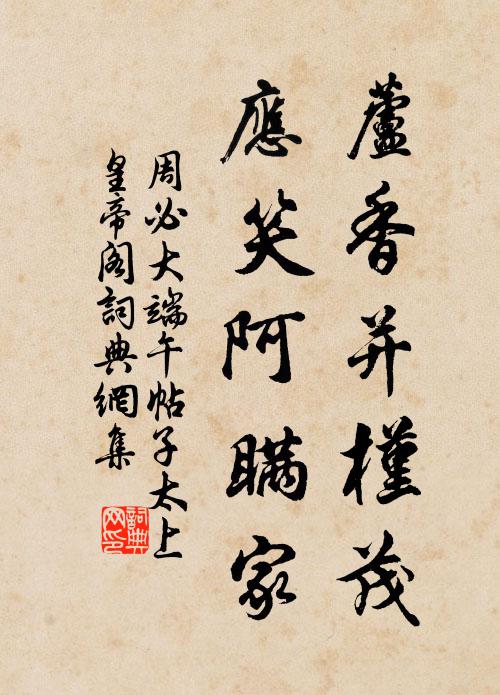 蘆香并槿茂
應笑阿瞞家
周必大端午帖子太上
皇帝閣詞典網集
詞典网印